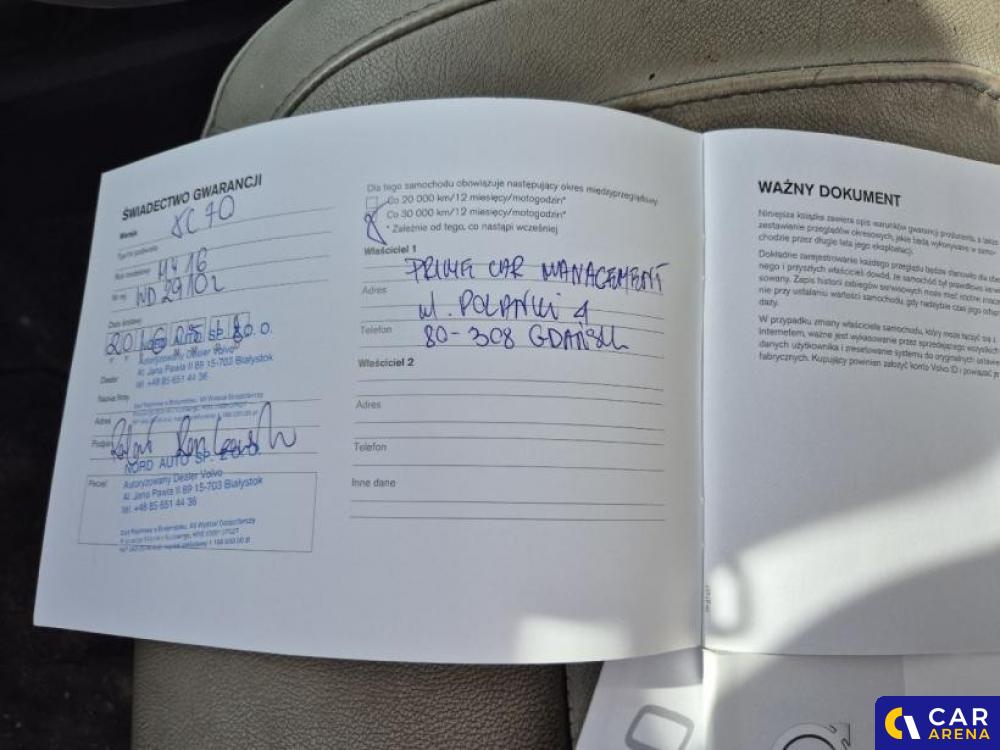 ŚWIADECTWO GWARANCJI
Marek
XC 70
Typ/nr podwozia
Rok modelowy MY 16
Nr rej. WD 2910
Data dostawy
SP. Z O.O.
Autoryzowany Dealer Volvo
Al. Jana Pawła II 89 15-703 Białystok
tel. +48 85 651 44 36
Dealer
Nazwa firmy
Adres
Podpis
NORD AUTO SP. Z O.O.
Autoryzowany Dealer Volvo
Al. Jana Pawła II 89 15-703 Białystok
tel. +48 85 651 44 36
Pieczęć
Dla tego samochodu obowiązuje następujący okres międzyprzeglądowy
Co 20 000 km/12 miesięcy/motogodzin*
Co 30 000 km/12 miesięcy/motogodzin*
* Zależnie od tego, co nastąpi wcześniej
Właściciel 1
PRIME CAR MANAGEMENT
Adres
ul. POLANKI 4
Telefon
80-308 GDAŃSK
Właściciel 2
Adres
Telefon
Inne dane
WAŻNY DOKUMENT
Niniejsza książka zawiera opis warunków gwarancji producenta, a także
zestawienie przeglądów okresowych, jakie będą wykonywane w samo-
chodzie przez długie lata jego eksploatacji.
Dokładne zarejestrowanie każdego przeglądu będzie stanowiło dla
nego i przyszłych właścicieli dowód, że samochód był prawidłowo serwi-
sowany. Zapis historii zabiegów serwisowych może mieć istotne znacze-
nie przy ustalaniu wartości samochodu, gdy nadejdzie czas jego odsprze-
daży.
W przypadku zmiany właściciela samochodu, który może łączyć się z
Internetem, ważne jest wykasowanie przez sprzedającego wszystkich
danych użytkownika i zresetowanie systemu do oryginalnych ustawień
fabrycznych. Kupujący powinien założyć konto Volvo ID i powiązać je
CAR
ARENA